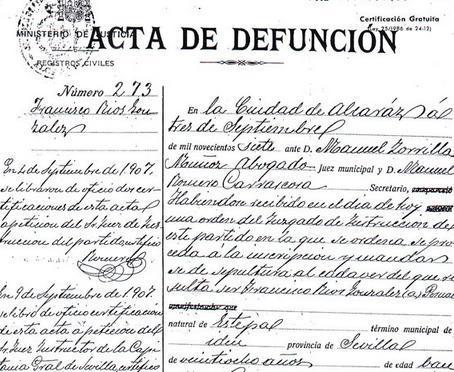 Certificación Gratuita
(Ley 25/1986 de 24-12)
MINISTERIO DE JUSTICIA
REGISTROS CIVILES
ACTA DE DEFUNCIÓN
Número 273
Francisco Rios Gon
zalez
En 4 de Septiembre de 1907.
se libraron de oficio dos cer
tificaciones de esta acta
a peticion del Sr Juez de Ins
truccion del partido, certifico
Romero
En 9 de Septiembre de 1907.
se libró de oficio certificación
de esta acta a peticion del
Sr Juez Instructor de la Capi
tania Gral de Sevilla, certifico
En la Ciudad de Alcaráz á
tres de Septiembre
de mil novecientos siete ante D. Manuel Zorrilla
Muñoz Abogado Juez municipal y D. Manuel
Romero Carrascosa
Secretario,
Habiendose recibido en el dia de hoy
una orden del Juzgado de Instruccion de
este partido en la que se ordena se pro
ceda a la inscripcion y mandar
se de sepultura al cadaver del que re
sulta ser Francisco Rios Gonzalez (a) Pernales
natural de Estepa término municipal de
idem provincia de Sevilla
de veintiocho años de edad